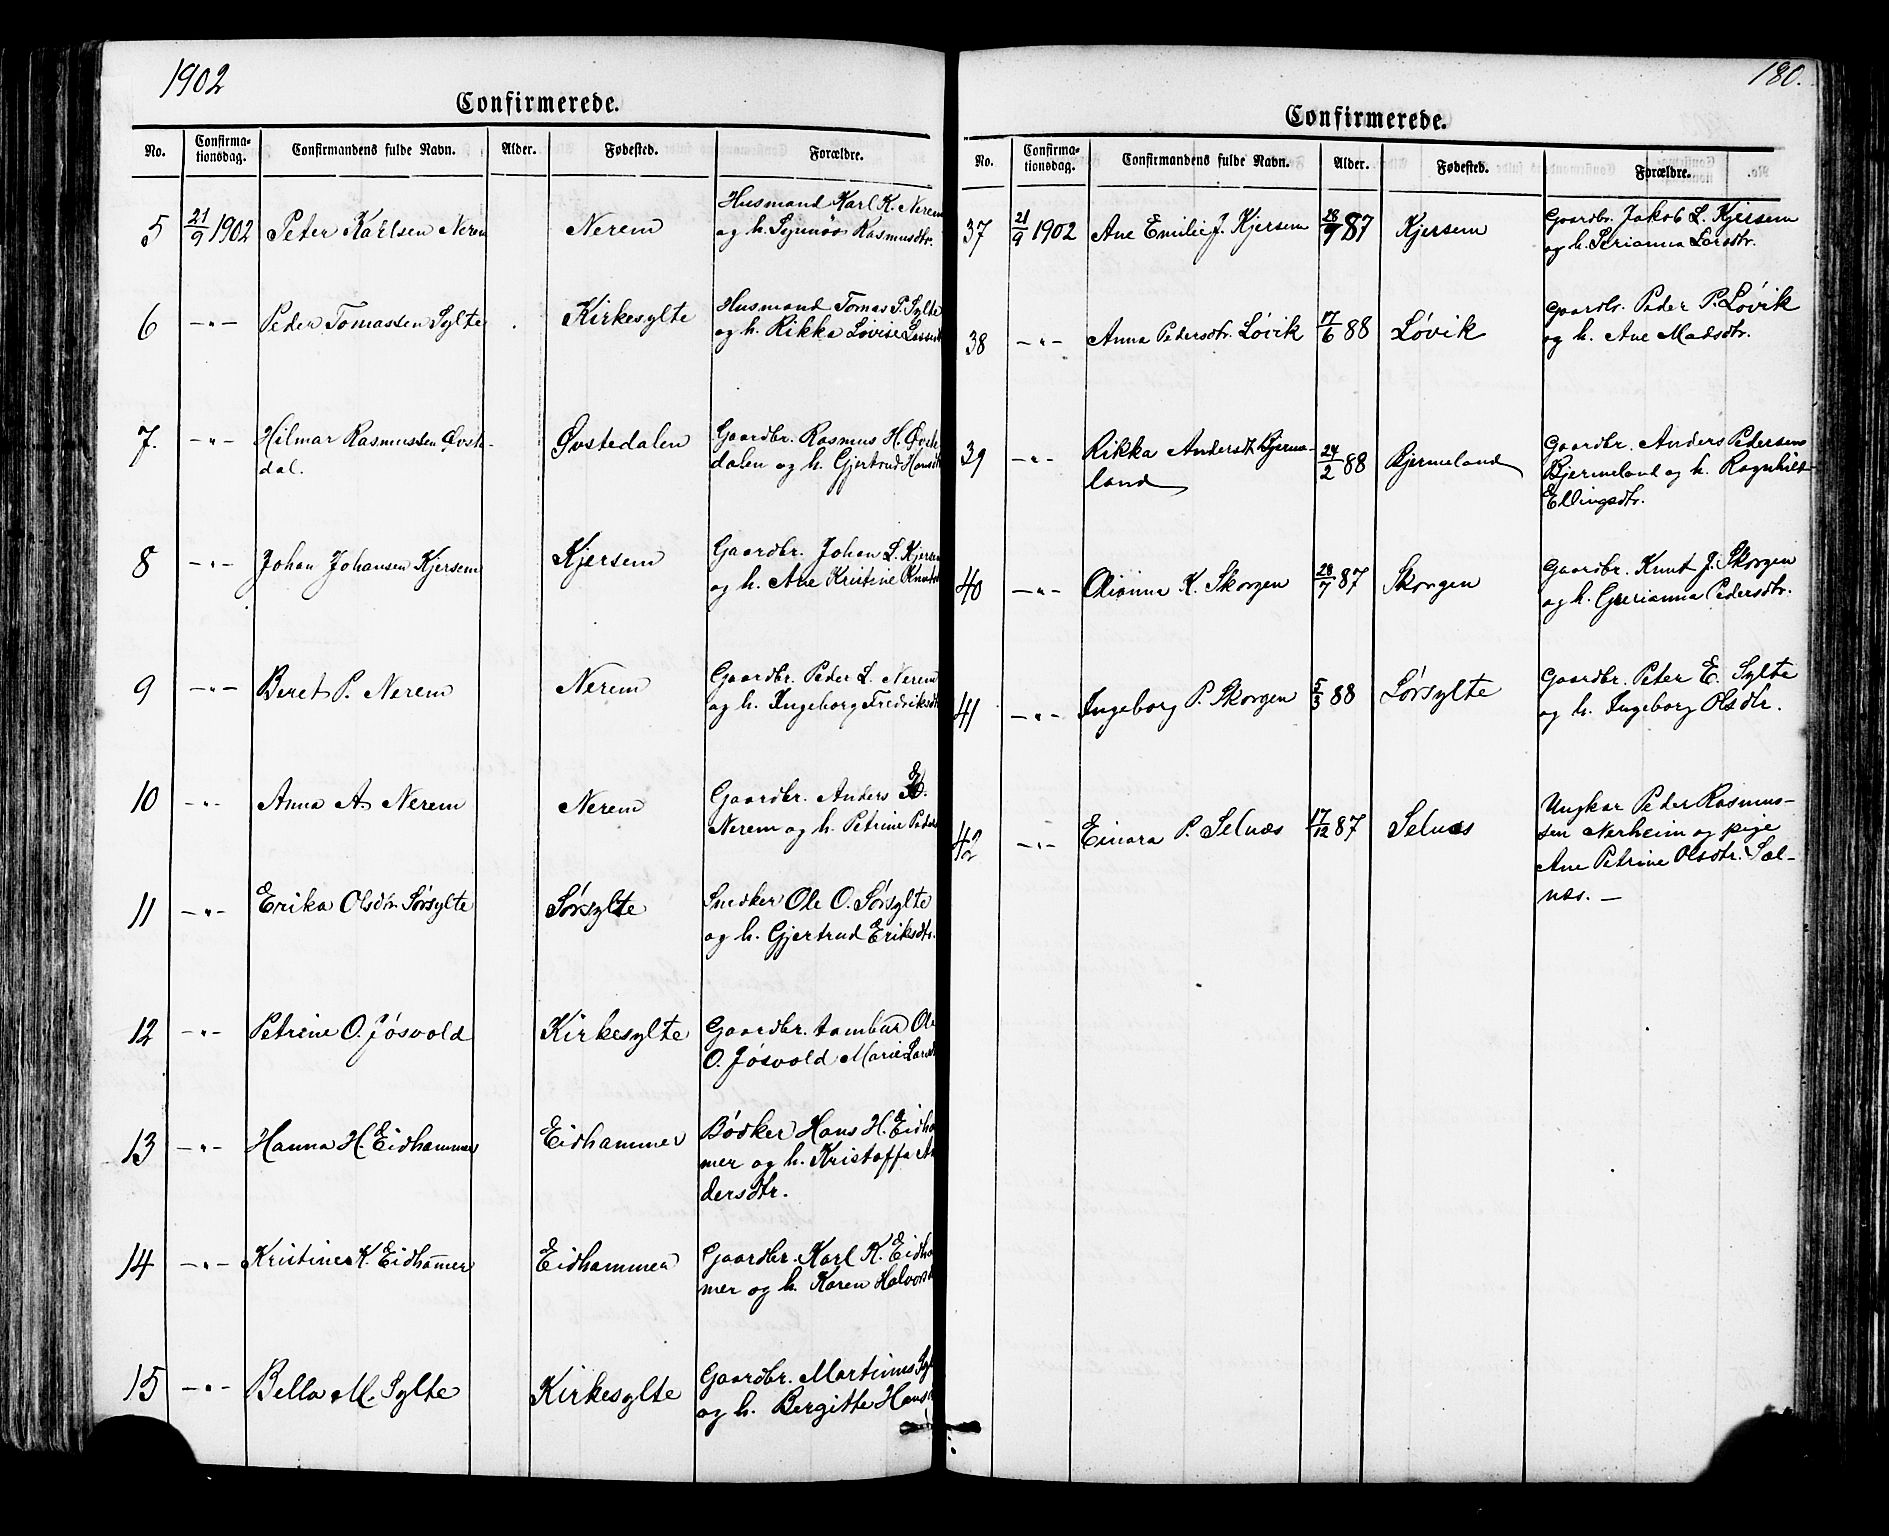 1902
Confirmerede.
No. Confirma-tionsdag. Confirmandens fulde Navn. Alder. Fødested. Forældre.
5 21/9 1902 Peter Karlsen Nerem Nerem Husmand Karl K. Nerem
og h. Synnøv Rasmusdtr.
6 -"- Peder Tomassen Sylte Kirkesylte Husmand Tomas P. Sylte
og h. Rikka Lovise
7. -"- Hilmar Rasmussen Øvste- Øvstedalen Gaardbr. Rasmus H. Øvste
dal. dalen og h. Gjertrud
8 -"- Johan Johansen Kjersem Kjersem Gaardbr. Johan L. Kjersem
og h. Ane Kristine
9 -"- Beret P. Nerem Nerem Gaardbr. Peder L. Nerem
og h. Ingeborg Fredriksdtr
10 -"- Anna A. Nerem Nerem Gaardbr. Anders E.
Nerem og h. Petrine
11 -"- Erika Olsdtr. Sørsylte Sørsylte Snedker Ole O. Sørsylte
og h. Gjertrud Eriksdtr.
12 -"- Petrine O. Jøsvold Kirkesylte Gaardbr. tambur Ole
O. Jøsvold Marie
13 -"- Hanna H. Eidhammer Eidhammer Bødker Hans H. Eidha
mer og h. Kristoffa An
dersdtr.
14 -"- Kristine K. Eidham̅er Eidhammer Gaardbr. Karl K. Eidha
mer og h. Karen Halvors
15 -"- Bella M. Sylte Kirkesylte Gaardbr. Martinus Syl
og h. Bergitte Hans
180.
Confirmerede.
No. Confirma-tionsdag. Confirmandens fulde Navn. Alder. Fødested. Forældre.
37 21/9 1902 Ane Emilie J. Kjersem 28/9 87 Kjersem Gaardbr. Jakob L. Kjersem
og h. Serianna Larsdtr.
38 -"- Anna Pedersdtr. Løvik 17/6 88 Løvik Gaardbr. Peder P. Løvik
og h. Ane Madsdtr.
39 -"- Rikka Andersdt. Bjerme- 24/2 88 Bjermeland Gaardbr. Anders Pedersen
land Bjermeland og h. Ragnhild
Ellingsdtr.
40 -"- K. Skorgen 28/7 87 Skorgen Gaardbr. Knut J. Skorgen
og h. Pedersdtr.
41 -"- Ingeborg P. Skorgen 5/3 88 Sørsylte Gaardbr. Peter E. Sylte
og h. Ingeborg Olsdtr.
42 -"- Einara P. Selnæs 17/12 87 Selnæs Ungkar Peder Rasmus-
sen Nerheim og pige
Ane Petrine Olsdtr. Sæl-
næs. —